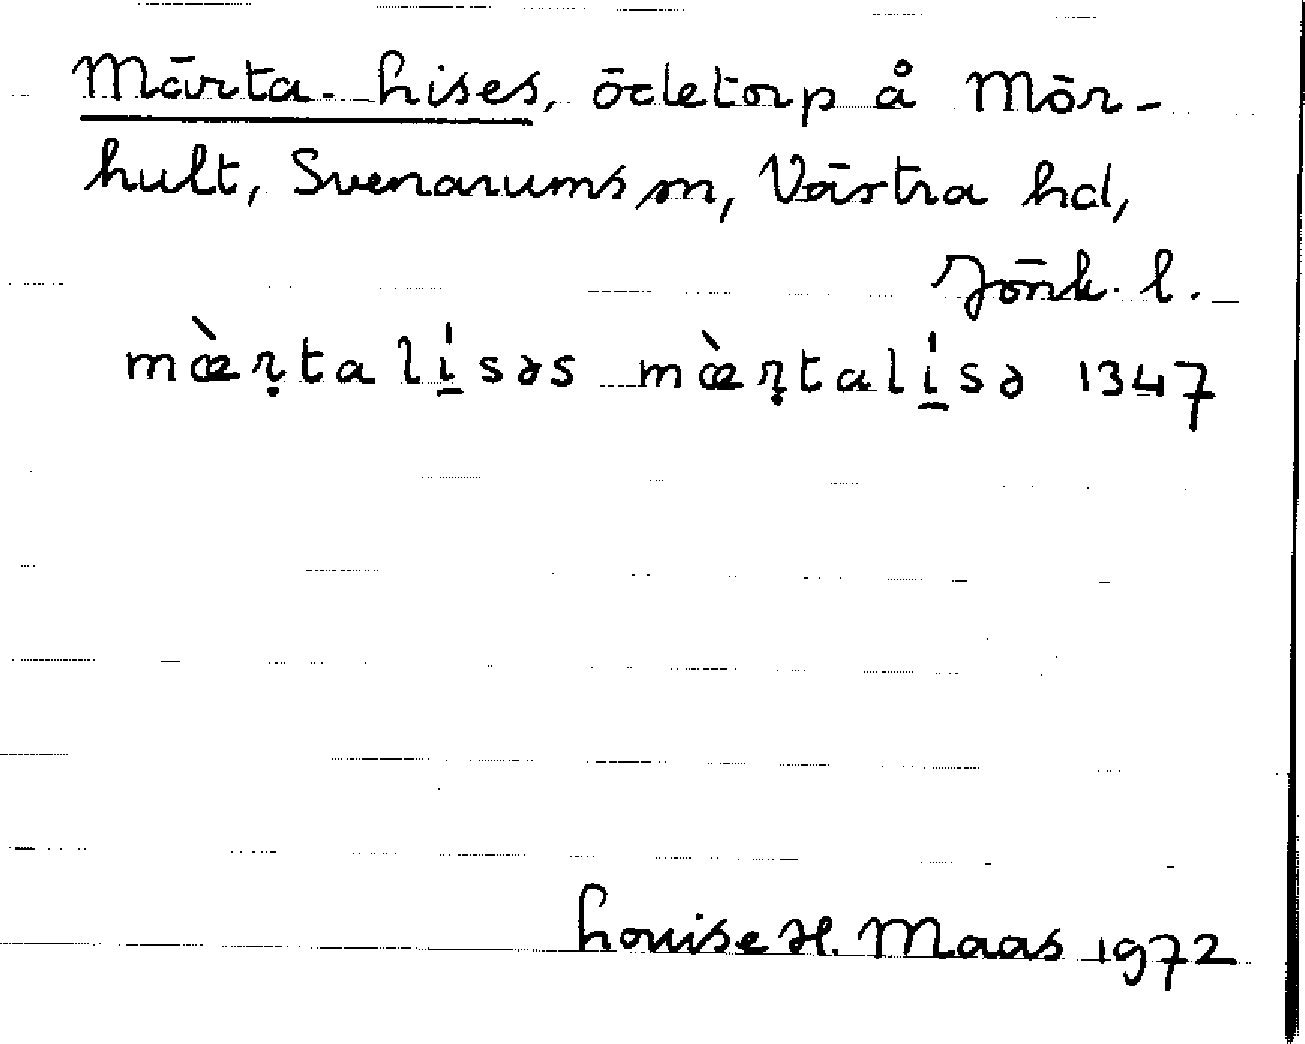 Mārta-Lises, ödetorp å Mör-
hult, Svenarums sn, Västra hd,
Jönk. l.
mæ̀ṛtalísəs mæ̀ṛtalísə 1347
Louise H. Maas 1972